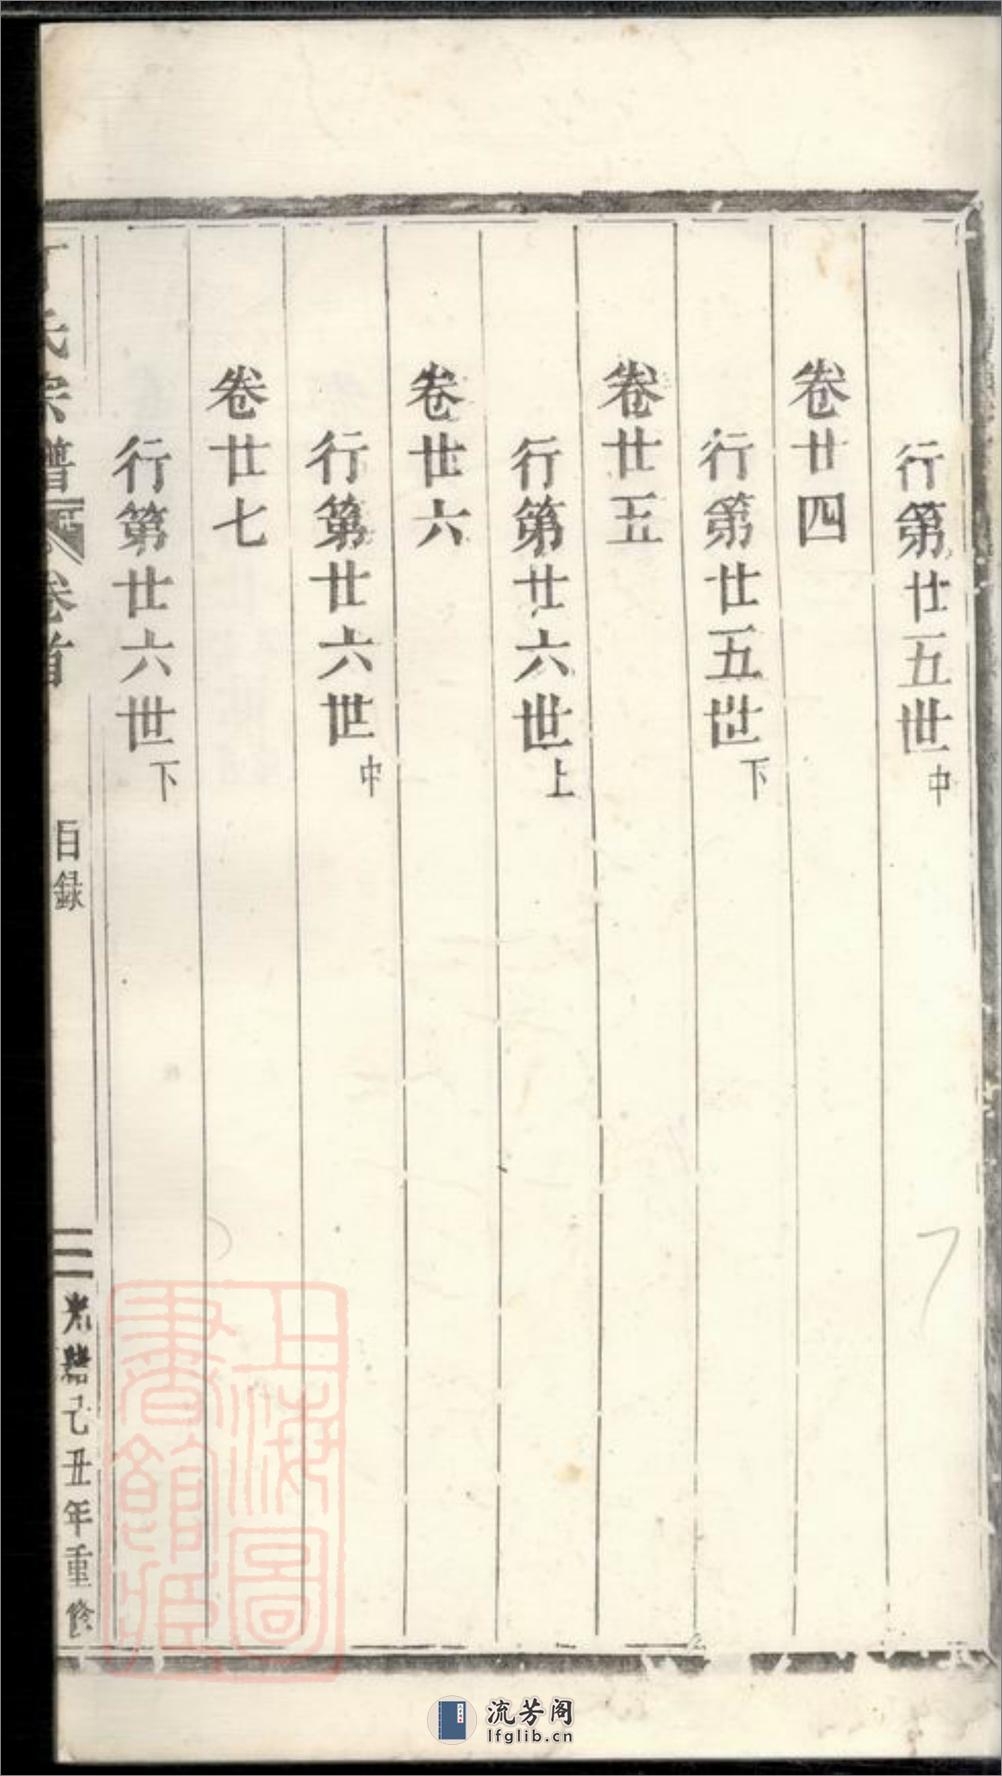 行第廿五世中
卷廿四
行第廿五世下
卷廿五
行第廿六世上
卷廿六
行第廿六世中
卷廿七
行第廿六世下
丁氏宗譜 卷首 目録 三 光緒己丑年重修
上海圖書館藏
流芳阁
lfglib.cn